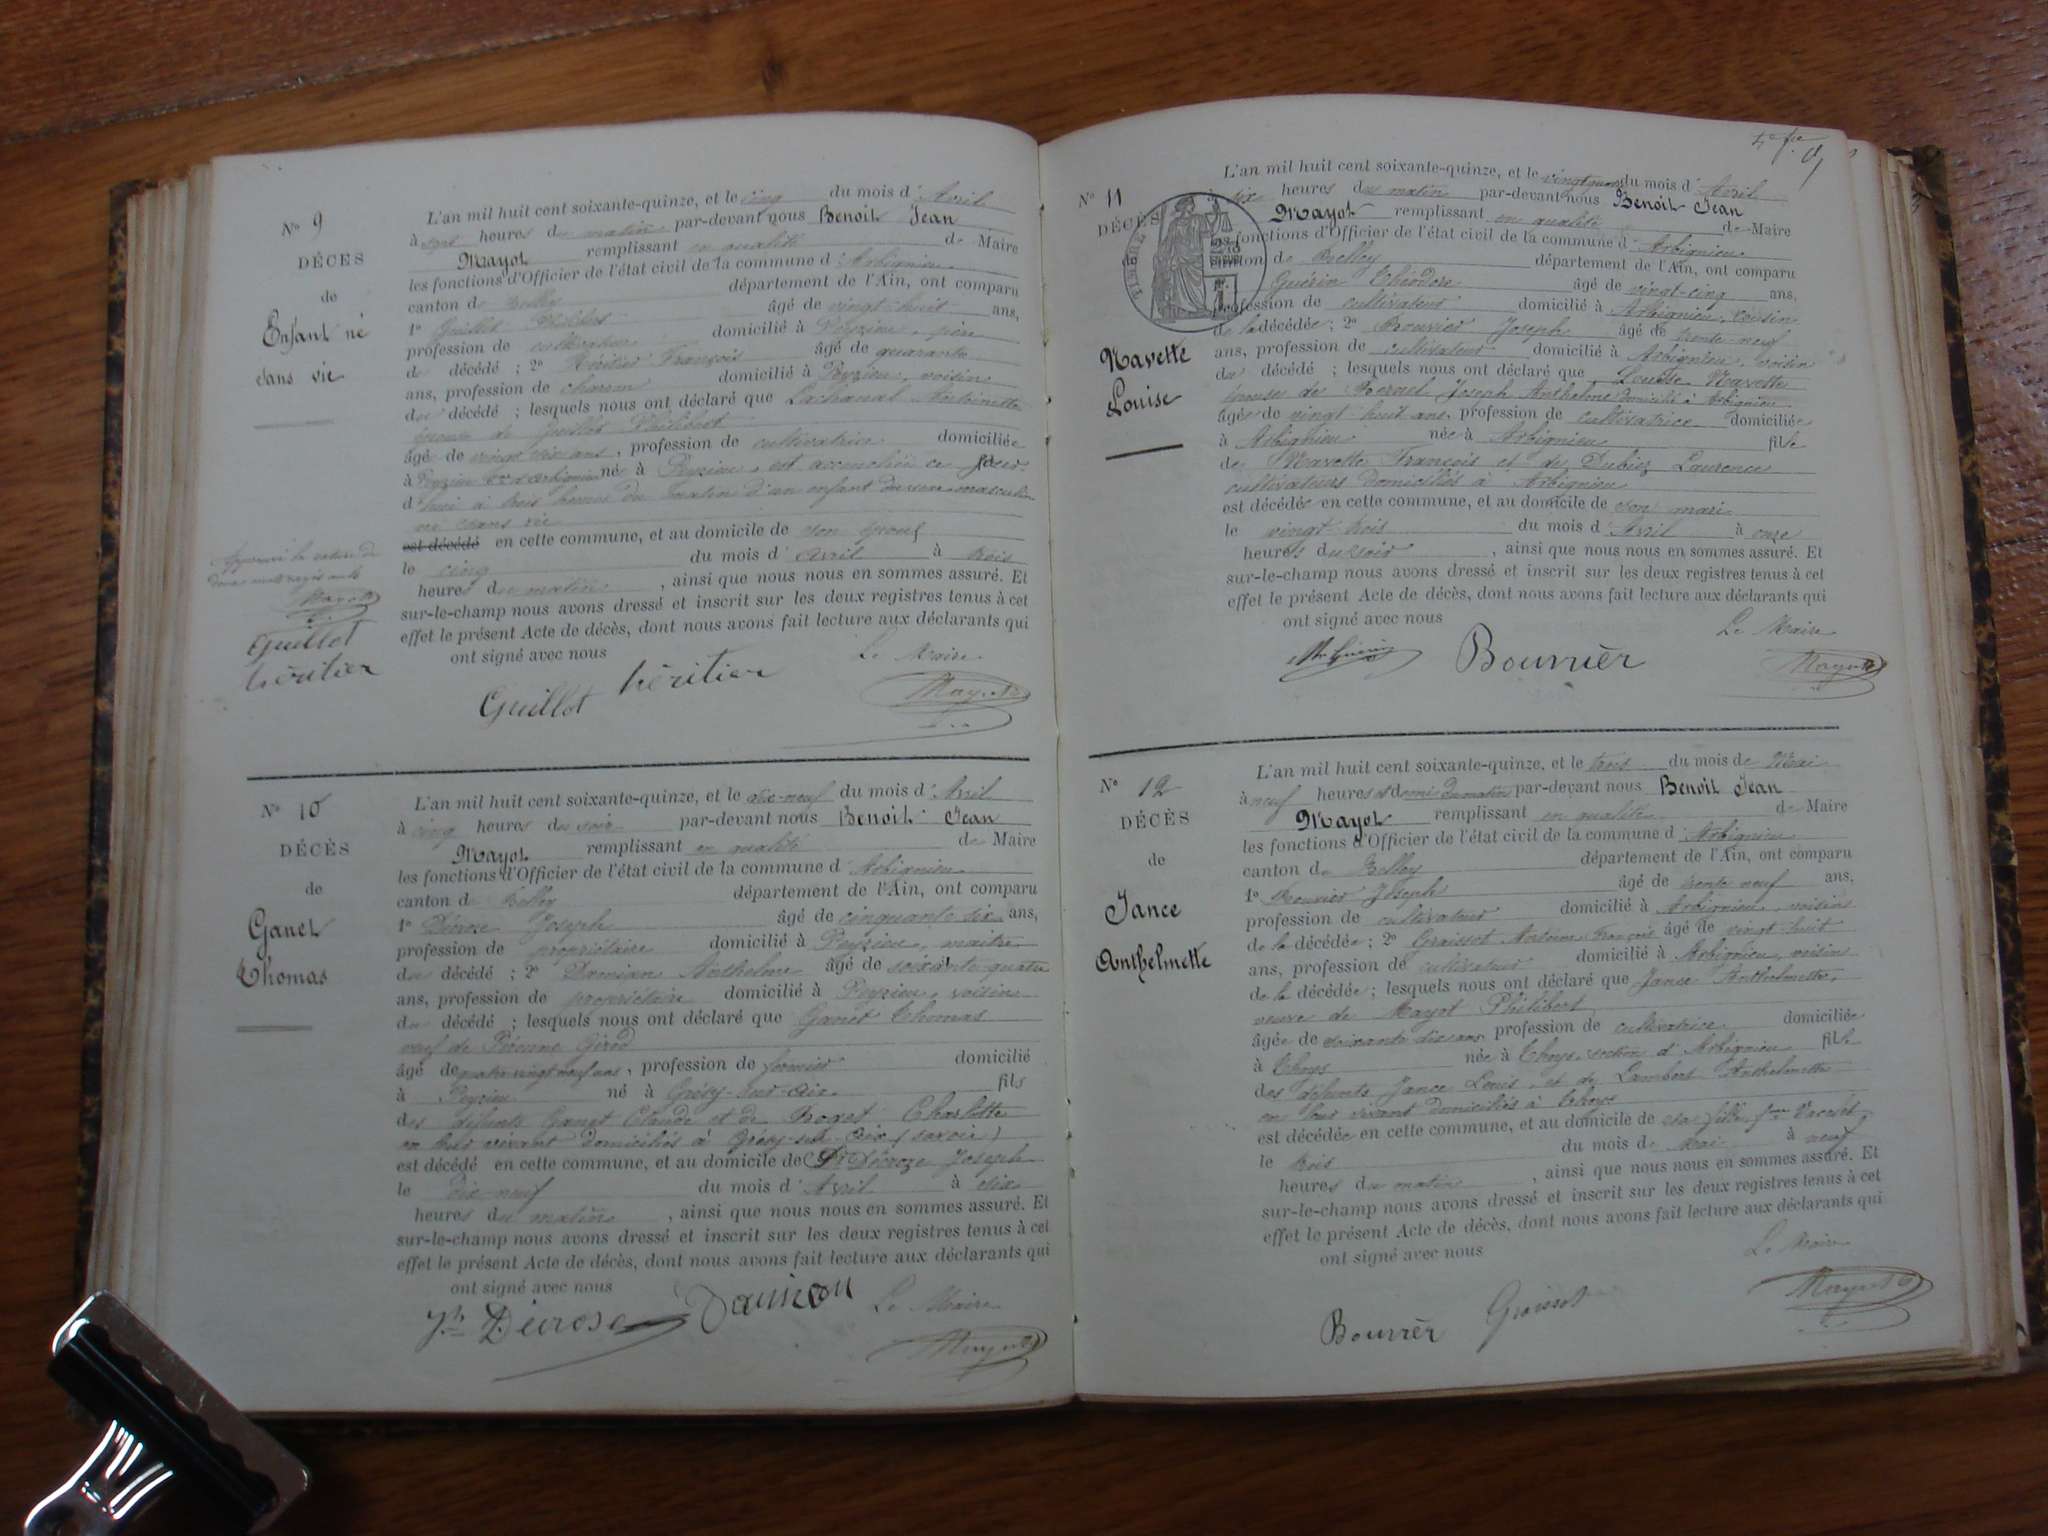 N° 9
DÉCES
de
Enfant né
sans vie
L'an mil huit cent soixante-quinze, et le cinq du mois d'Avril
à sept heures du matin par-devant nous Benoit Jean
Mayot remplissant en qualité de Maire
les fonctions d'Officier de l'état civil de la commune d'Arbignieu
canton de Belley département de l'Ain, ont comparu
1° Guillot Philibert âgé de vingt-huit ans,
profession de cultivateur domicilié à Peyzieu, père
du décédé ; 2° Héritier François âgé de quarante
ans, profession de charron domicilié à Peyzieu, voisin
du décédé ; lesquels nous ont déclaré que Lachanal Antoinette
épouse de Guillot Philibert
âgé de vingt six ans, profession de cultivatrice domiciliée
à Peyzieu né à Peyzieu, est accouchée ce jour
d'hui à trois heures du matin d'un enfant du sexe masculin
né sans vie
est décédé en cette commune, et au domicile de son époux
le cinq du mois d'avril à trois
heures du matin, ainsi que nous nous en sommes assuré. Et
sur-le-champ nous avons dressé et inscrit sur les deux registres tenus à cet
effet le présent Acte de décès, dont nous avons fait lecture aux déclarants qui
ont signé avec nous
Le Maire
Guillot héritier Mayot
Approuvé la rature de
deux mots rayés nuls
Mayot
Guillot
héritier
N° 10
DÉCÈS
de
Ganet
Thomas
L'an mil huit cent soixante-quinze, et le dix-neuf du mois d'Avril
à cinq heures du soir par-devant nous Benoit Jean
Mayot remplissant en qualité de Maire
les fonctions d'Officier de l'état civil de la commune d'Arbignieu
canton de Belley département de l'Ain, ont comparu
1° Décroze Joseph âgé de cinquante six ans,
profession de propriétaire domicilié à Peyzieu, maître
du décédé ; 2° Damian Anthelme âgé de soixante quatre
ans, profession de propriétaire domicilié à Peyzieu, voisin
du décédé ; lesquels nous ont déclaré que Ganet Thomas
veuf de Péronne Girod
âgé de quatre vingt neuf ans, profession de fermier domicilié
à Peyzieu né à Grésy-sur-Aix fils
des défunts Ganet Claude et de Boget Charlotte
en leur vivant domiciliés à Grésy-sur-Aix (savoie)
est décédé en cette commune, et au domicile de Décroze Joseph
le dix-neuf du mois d'Avril à six
heures du matin, ainsi que nous nous en sommes assuré. Et
sur-le-champ nous avons dressé et inscrit sur les deux registres tenus à cet
effet le présent Acte de décès, dont nous avons fait lecture aux déclarants qui
ont signé avec nous
Le Maire
Jh Décrose Damian Mayot
N° 11
DÉCÈS
Navette
Louise
L'an mil huit cent soixante-quinze, et le vingt quatre du mois d'Avril
à six heures du matin par-devant nous Benoit Jean
Mayot remplissant en qualité de Maire
les fonctions d'Officier de l'état civil de la commune d'Arbignieu
canton de Belley département de l'Ain, ont comparu
Guérin Théodore âgé de vingt-cinq ans,
profession de cultivateur domicilié à Arbignieu, cousin
de la décédée ; 2° Bouvier Joseph âgé de trente-neuf
ans, profession de cultivateur domicilié à Arbignieu, voisin
du décédé ; lesquels nous ont déclaré que Louise Navette
épouse de Joseph Anthelme domicilié à Arbignieu
âgée de vingt huit ans, profession de cultivatrice domiciliée
à Arbignieu née à Arbignieu fille
de Navette François et de Dubiez Laurence
cultivateurs domiciliés à Arbignieu
est décédée en cette commune, et au domicile de son mari
le vingt-trois du mois d'Avril à onze
heures du soir, ainsi que nous nous en sommes assuré. Et
sur-le-champ nous avons dressé et inscrit sur les deux registres tenus à cet
effet le présent Acte de décès, dont nous avons fait lecture aux déclarants qui
ont signé avec nous
Le Maire
Guérin Bouvier Mayot
N° 12
DÉCÈS
de
Jance
Anthelmette
L'an mil huit cent soixante-quinze, et le trois du mois de Mai
à neuf heures et demi du matin par-devant nous Benoit Jean
Mayot remplissant en qualité de Maire
les fonctions d'Officier de l'état civil de la commune d'Arbignieu
canton de Belley département de l'Ain, ont comparu
1° Bouvier Joseph âgé de trente neuf ans,
profession de cultivateur domicilié à Arbignieu, voisin
de la décédée ; 2° Graissot Antoine François âgé de vingt-huit
ans, profession de cultivateur domicilié à Arbignieu, voisin
de la décédée ; lesquels nous ont déclaré que Jance Anthelmette,
veuve de Mayot Philibert
âgée de soixante dix ans profession de cultivatrice domiciliée
à Thoys née à Thoys section d'Arbignieu fille
des défunts Jance Louis, et de Lambert Anthelmette
en leur vivant domiciliés à Thoys
est décédée en cette commune, et au domicile de sa fille
le trois du mois de Mai à neuf
heures du matin, ainsi que nous nous en sommes assuré. Et
sur-le-champ nous avons dressé et inscrit sur les deux registres tenus à cet
effet le présent Acte de décès, dont nous avons fait lecture aux déclarants qui
ont signé avec nous
Le Maire
Bouvier Graissot Mayot